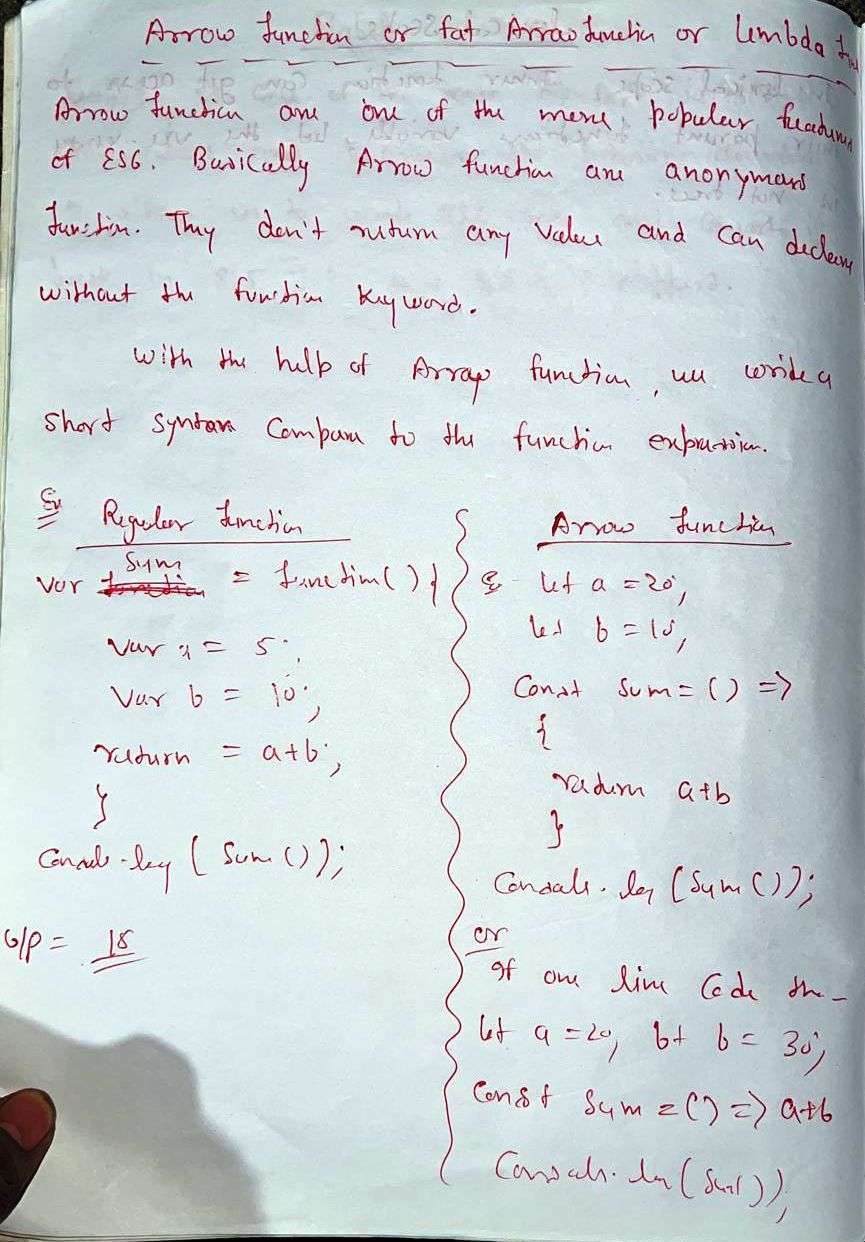 Arrow function or fat Arrow function or Lembda fun
Arrow function are one of the more popular feactures
of ES6. Basically Arrow function are anonymous
function. They don't return any value and can declare
without the function keyword.
With the help of Array function, we write a
short syntax compare to the function expression.
Ex Regular function
var sum = function() {
var a = 5;
var b = 10;
return = a+b;
}
Console.log ( Sum ());
O/P = 15
Arrow function
Ex let a = 20;
let b = 10;
Const sum = () =>
{
return a+b
}
Console.log (Sum ());
or
If one line Code the_
let a = 20; let b = 30;
Const Sum = () => a+b
Console.log (Sum());